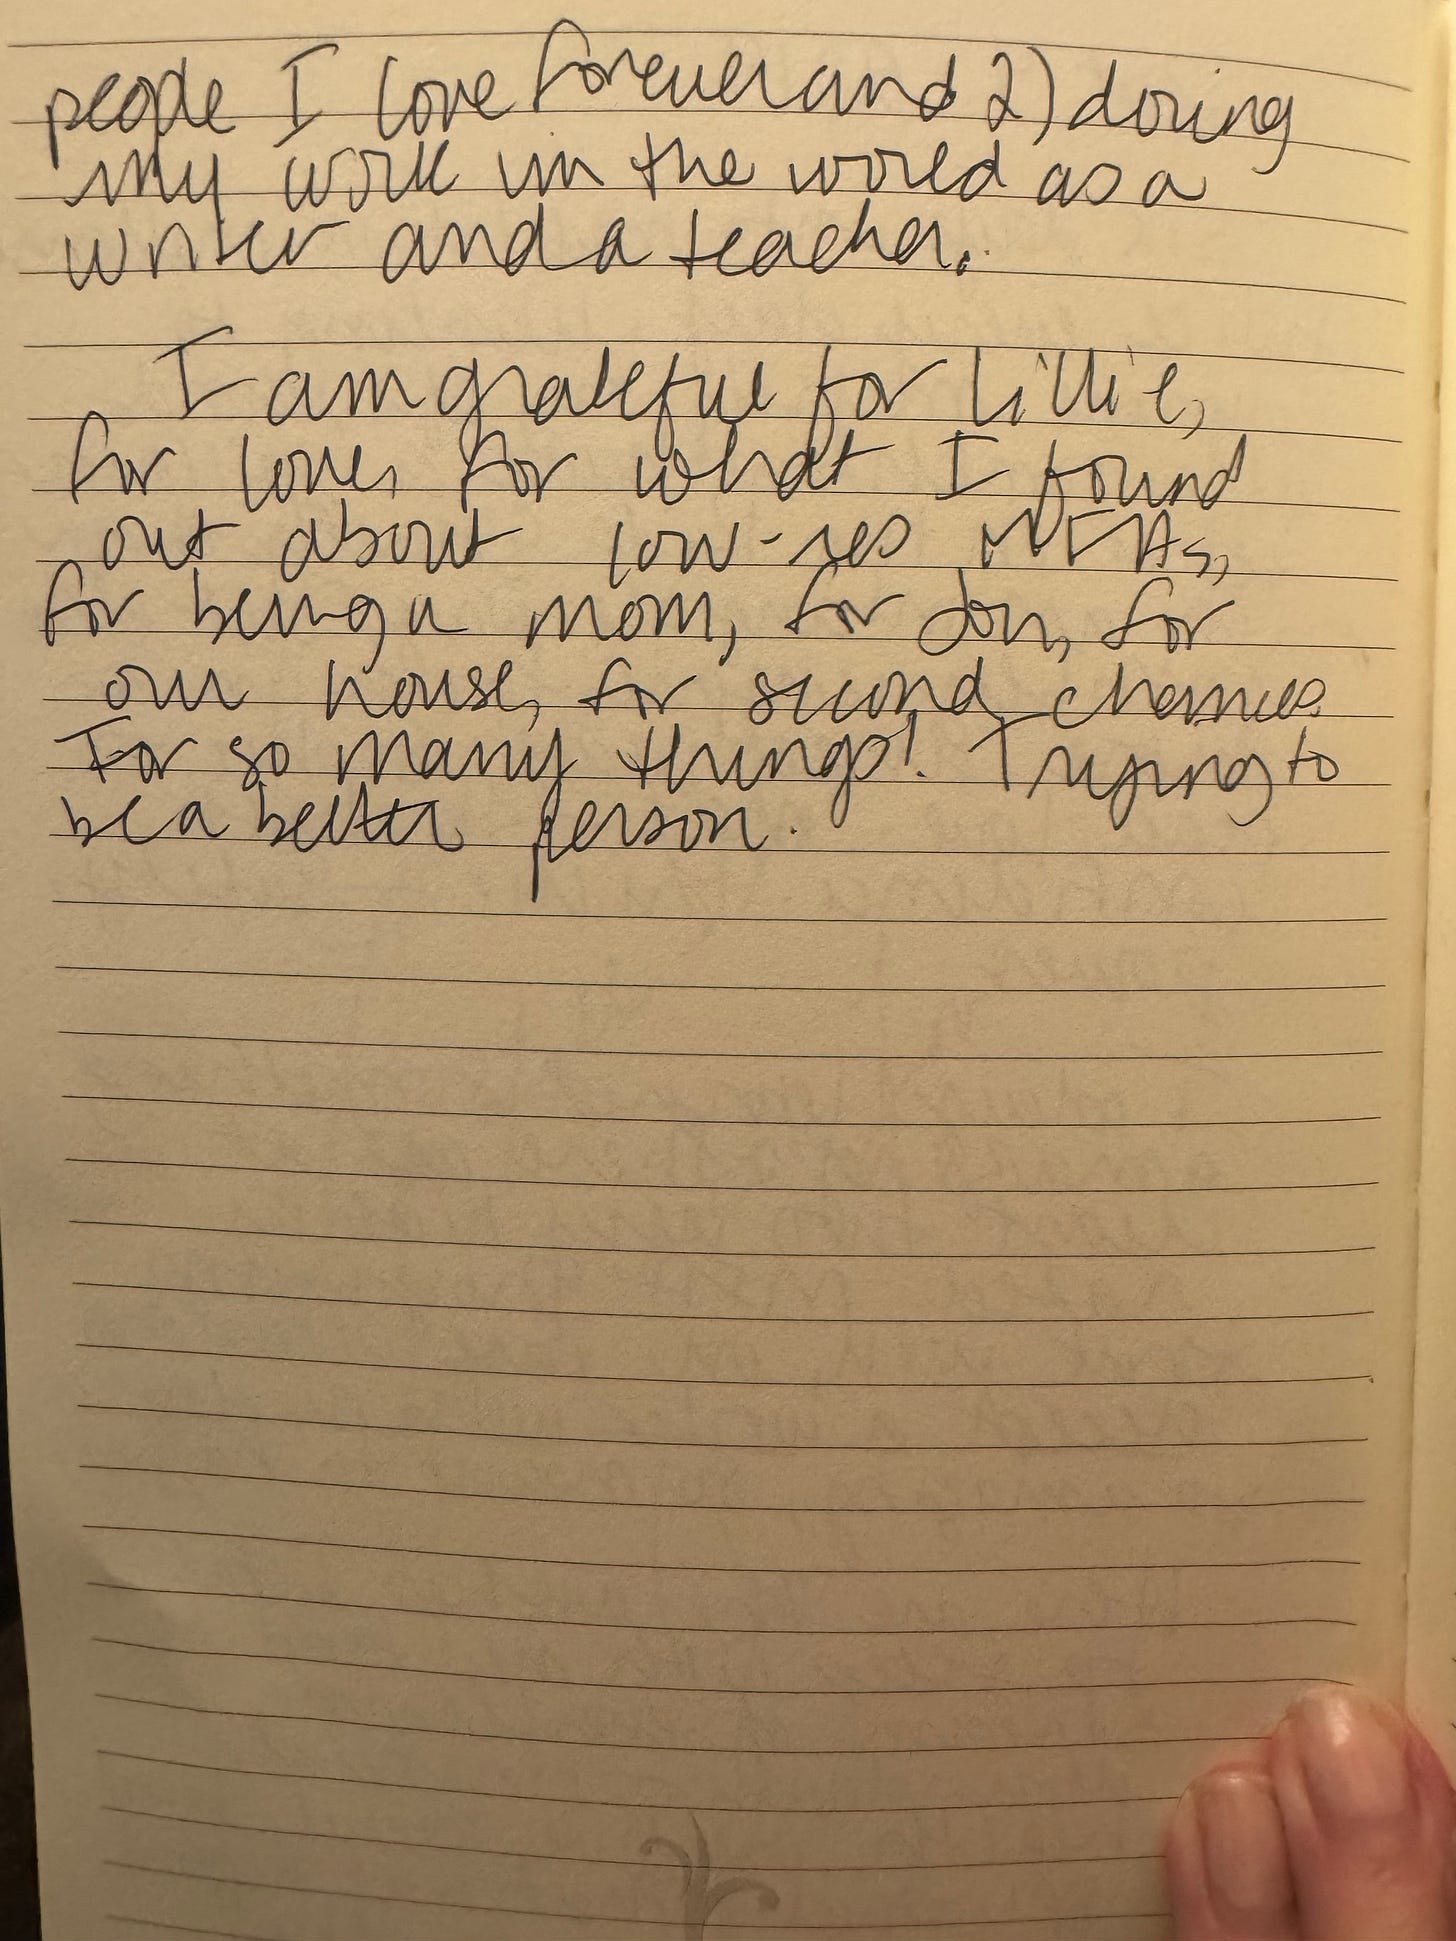 people I love forever and 2) doing
my work in the world as a
writer and a teacher.
I am grateful for Lillie,
for love, for what I found
out about low-res MFAs,
for being a mom, for Jon, for
our house, for second chances
For so many things! Trying to
be a better person.